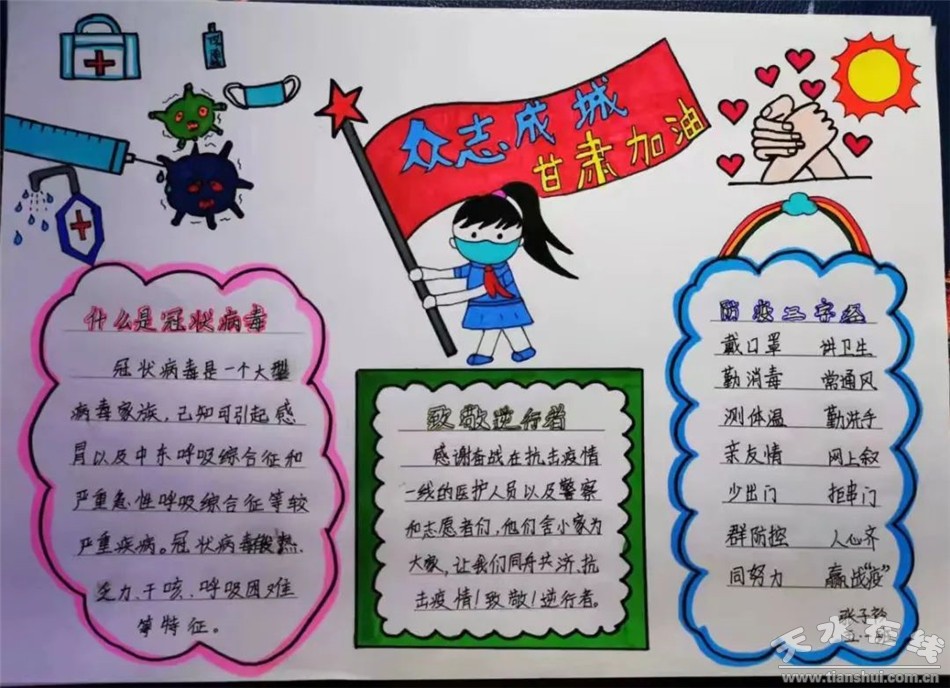 众志成城
甘肃加油
什么是冠状病毒
冠状病毒是一个大型
病毒家族，已知可引起感
冒以及中东呼吸综合征和
严重急性呼吸综合征等较
严重疾病。冠状病毒
乏力、干咳、呼吸困难
等特征。
致敬逆行者
感谢奋战在抗击疫情
一线的医护人员以及警察
和志愿者们，他们舍小家为
大家，让我们同舟共济，抗
击疫情！致敬！逆行者。
防疫三字经
戴口罩 讲卫生
勤消毒 常通风
测体温 勤洗手
亲友情 网上叙
少出门 拒串门
群防控 人心齐
同努力 赢战“疫”
张子
天水在线
www.tianshui.com.cn